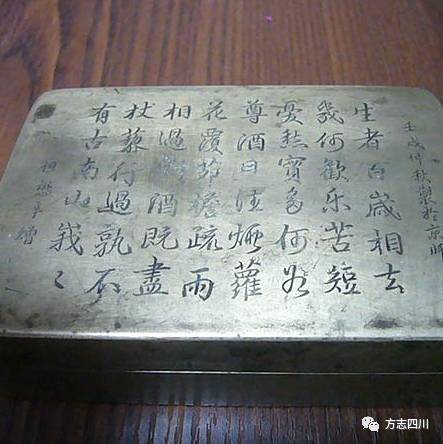 壬戌仲秋製於京師
生者百歲相去
幾何歡乐苦短
憂愁實多何如
尊酒日往煙蘿
花覆茆檐疏雨
相過倒酒既盡
杖藜行過孰不
有古南山峩〻
方志四川